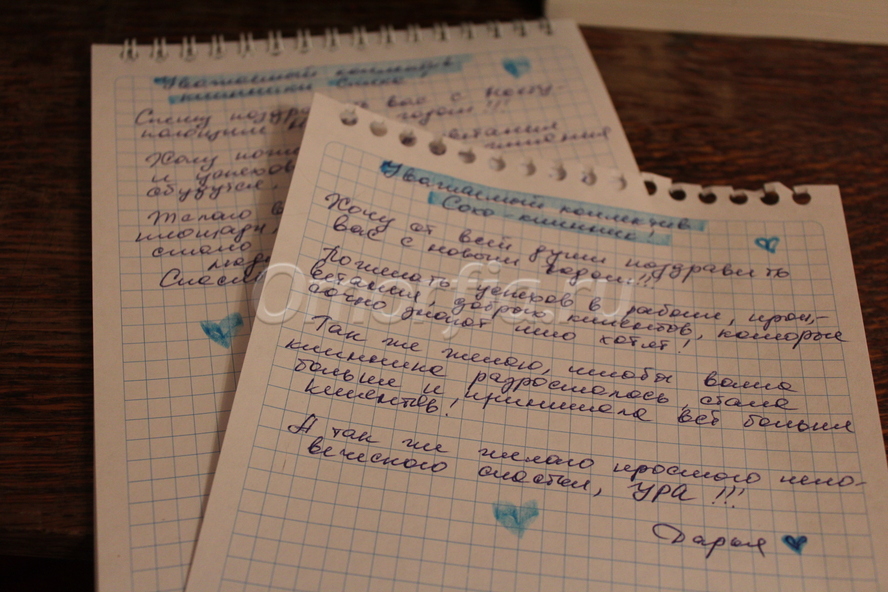 Уважаемый коллектив
клиники
Спешу поздра вас с насту-
пающим годом!!!
Хочу
и успехов
сбудутся,
Желаю в
площади,
люде
Уважаемый коллектив
клиник!
Хочу от всей души поздравить
вас с новым годом!!!
Пожелать успехов в работе, проц-
ветания, добрых клиентов, которые
точно знают что хотят!
Так же желаю, чтобы ваша
клиника разросталась, стала
больше и принимала всё больше
клиентов!
А так же желаю простого чело-
веческого счастья, УРА!!!
Дарья
Omorfia.ru